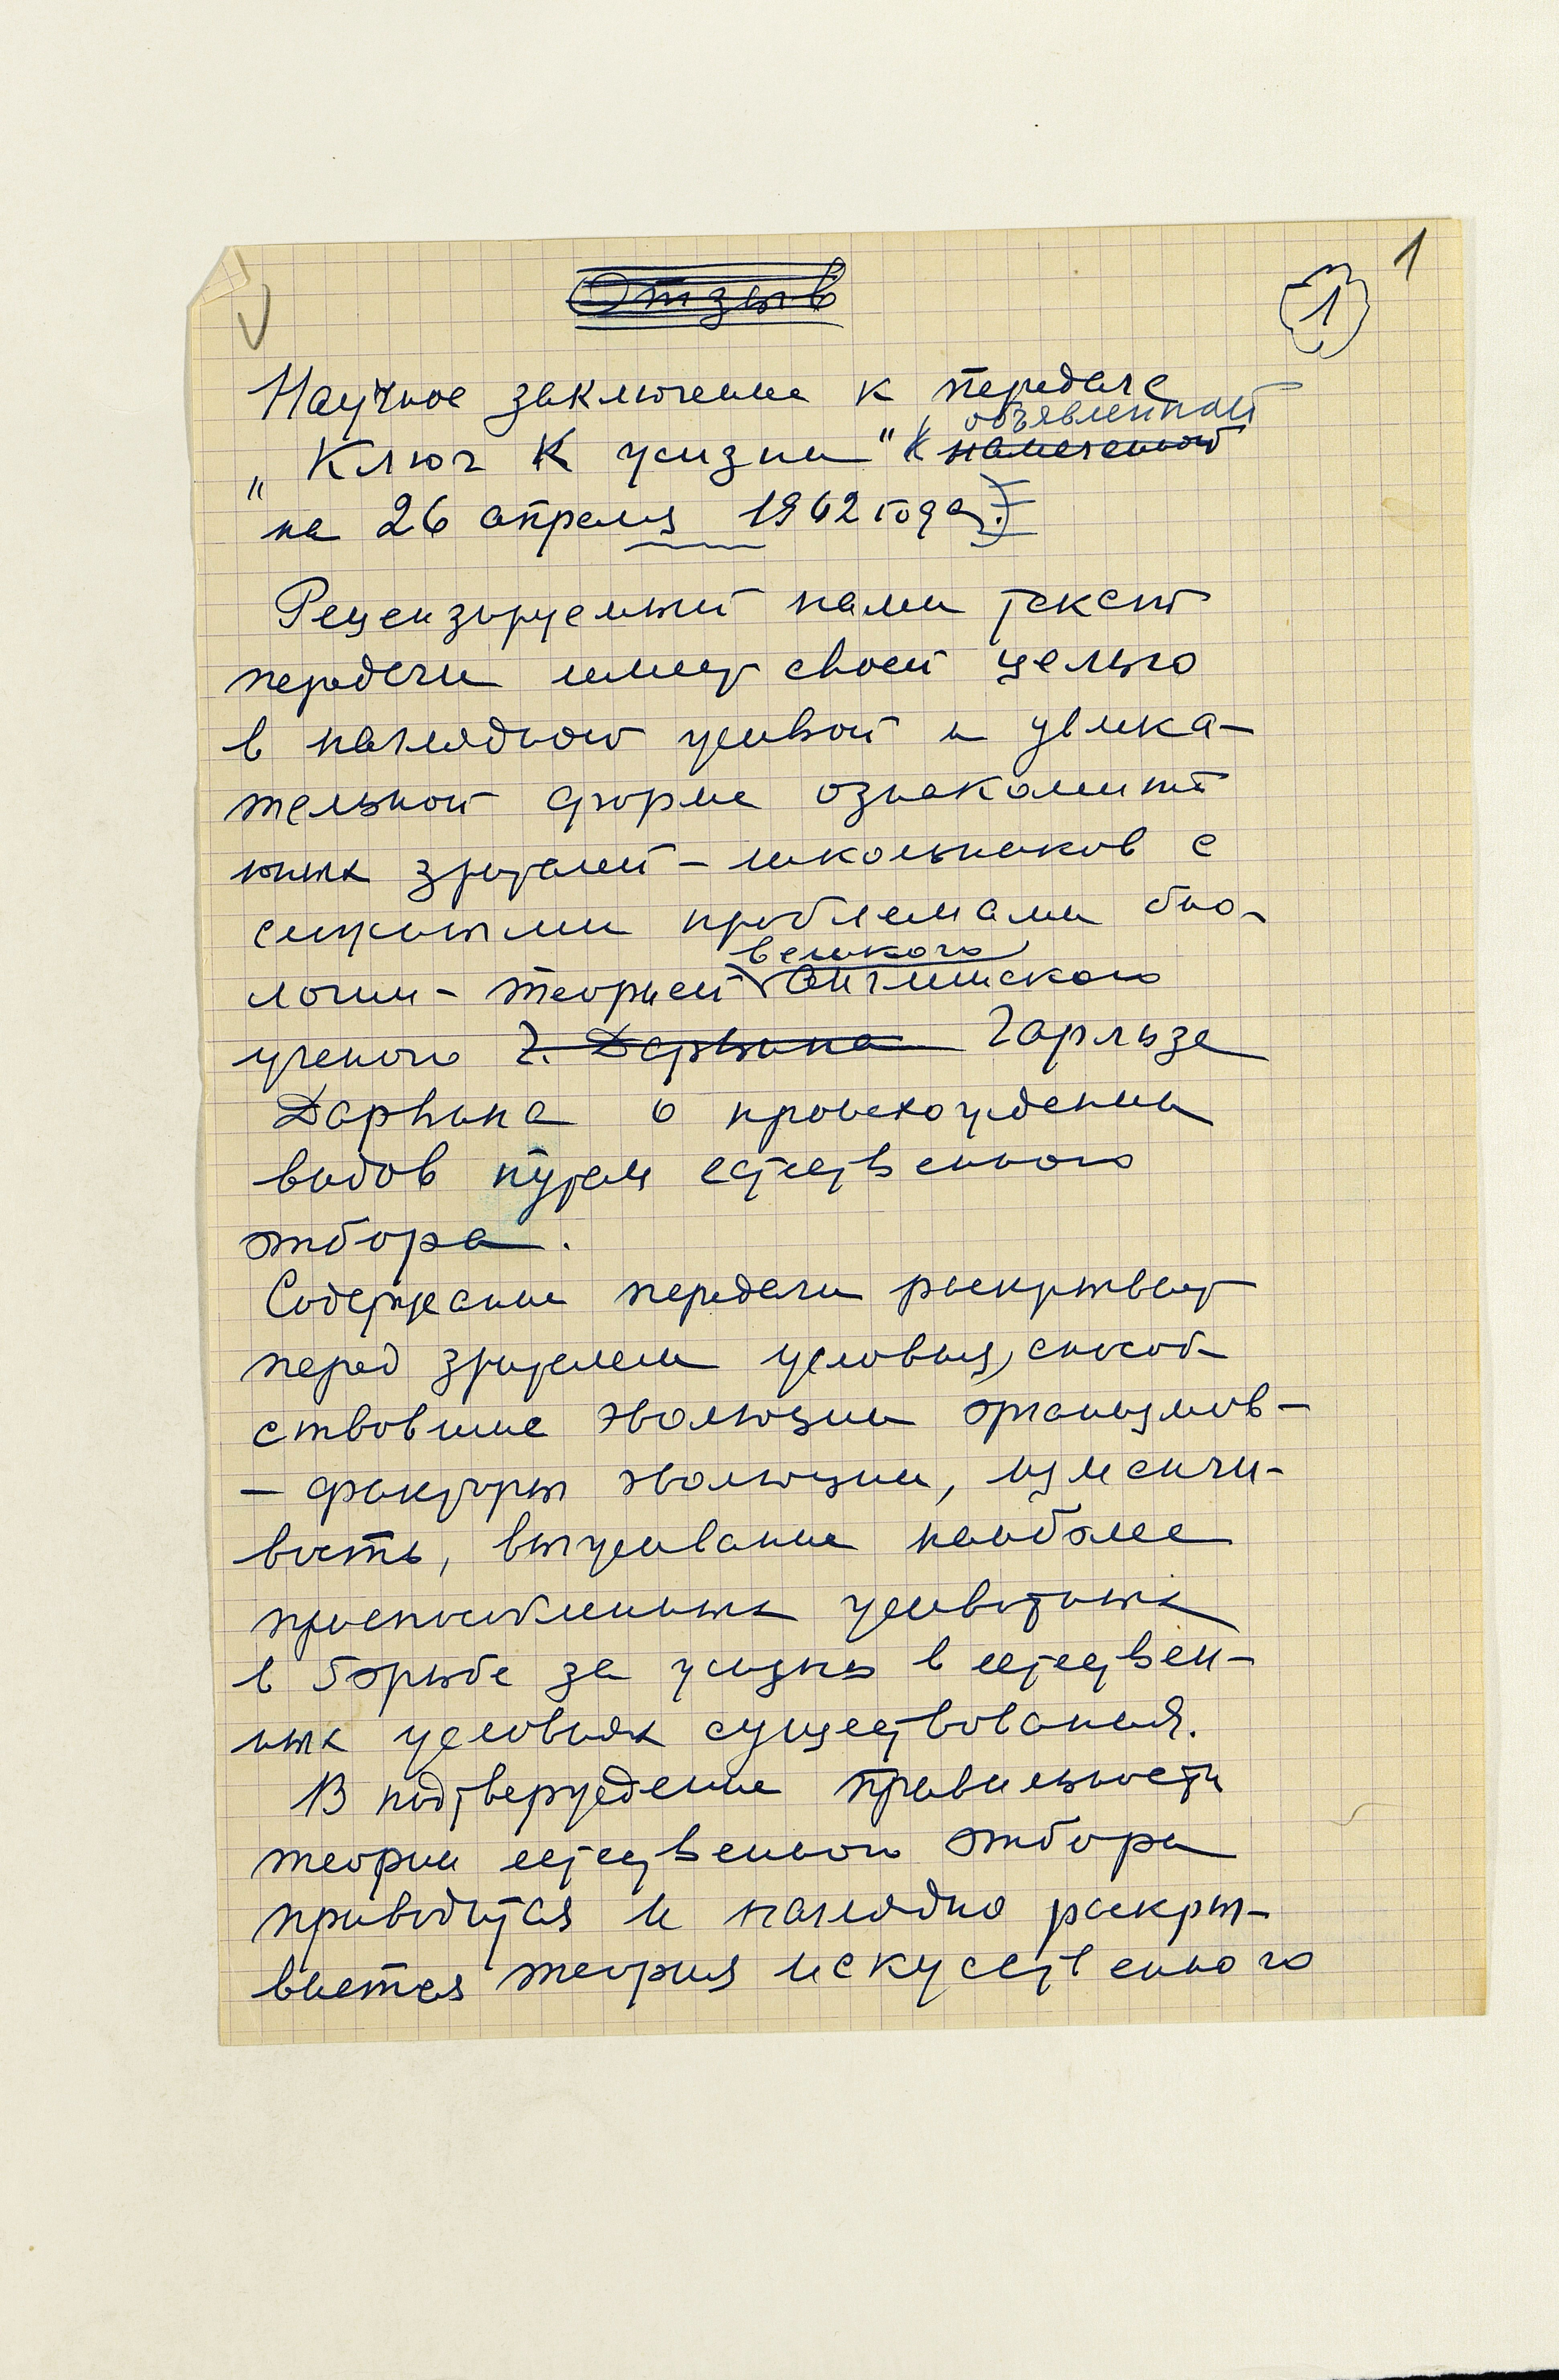 1
1
Отзыв
Научное заключение к передаче
объявленной
„Ключ к жизни" (намеченной
на 26 апреля 1962 года).
Рецензируемый нами текст
передачи имеет своей целью
в наглядной живой и увлека-
тельной форме ознакомить
юных зрителей - школьников с
проблемами био-
великого
логии - теорией английского
ученого Ч. Дарвина Чарльза
Дарвина о происхождении
видов путем естественного
отбора.
Содержание передачи раскрывает
перед зрителем условия, способ-
ствовшие эволюции организмов -
- факторы эволюции, изменчи-
вость, выживание наиболее
приспособленных животных
в борьбе за жизнь в естествен-
ных условиях существования.
В подтверждение правильности
теории естественного отбора
приводится и наглядно раскры-
вается теория искусственного